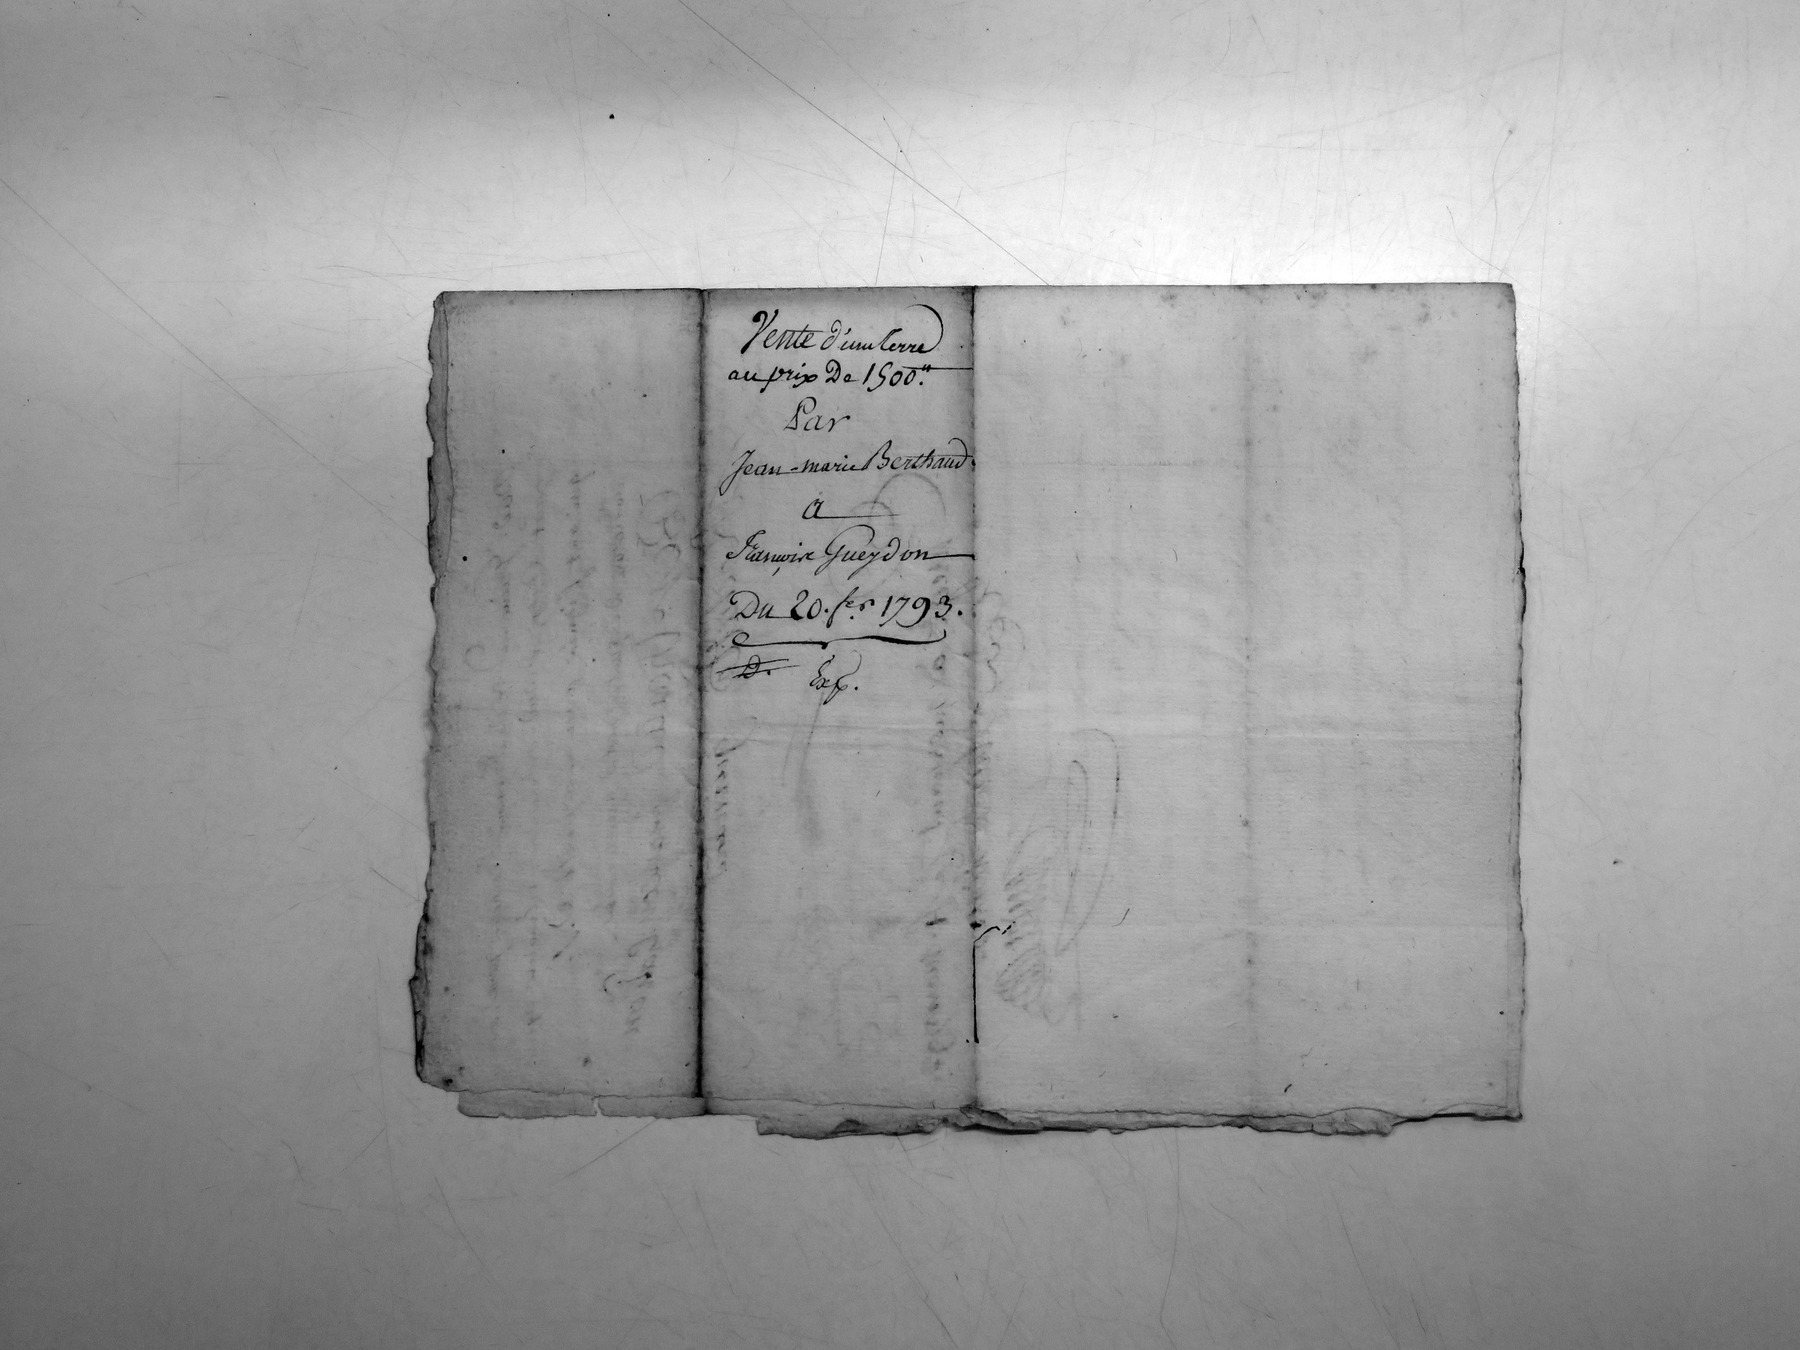 Vente d'une terre
au prix De 1500.tt
Par
Jean-marie Berthaud.
a
François Gueydon
Du 20. fer. 1793.
D. Exp.